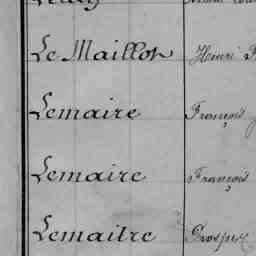 Le Maillon Henri
Lemaire François
Lemaire François
Lemaitre Prosper